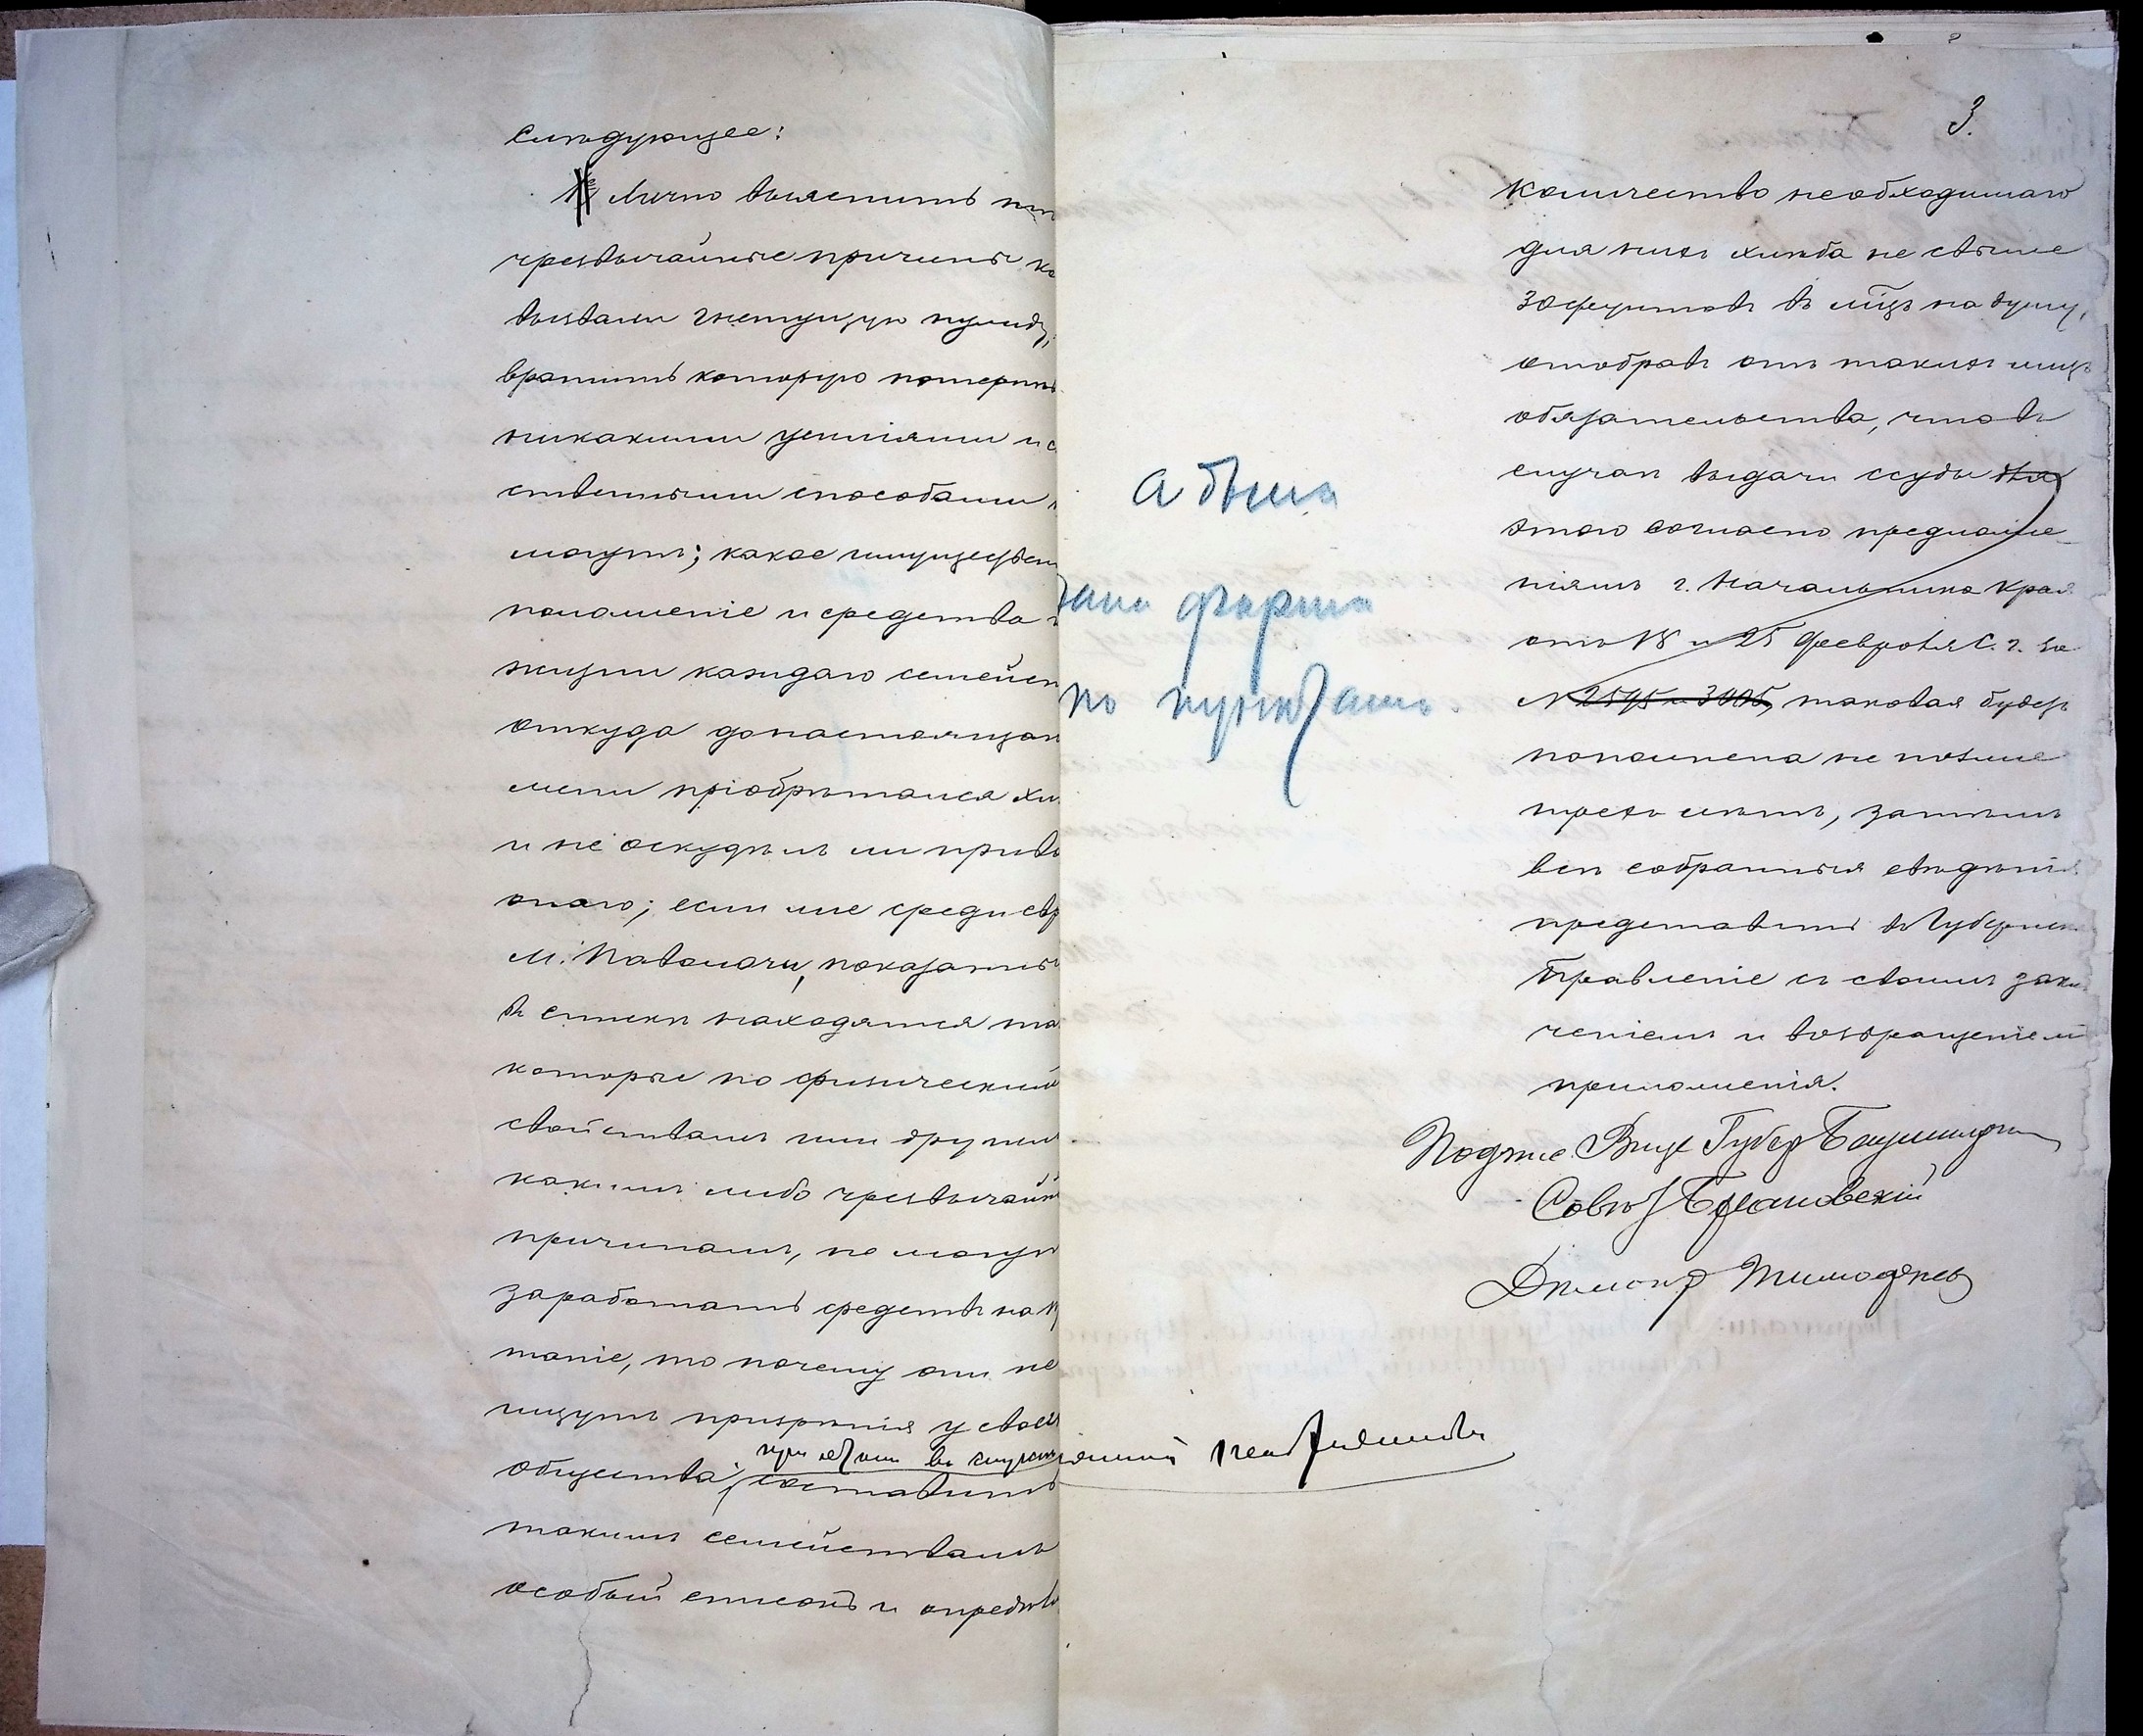 слѣдующее:
Лично выяснить
чрезвычайные причины
вызвали гнетущую нужду,
вратить которую потерпѣ
никакими усиліями и с
ственными способами
могутъ; какое имуществен
положеніе и средства
жизни каждаго семейст
откуда донастоящаго
мени пріобрѣтался хл
и не оскудѣлъ ли приво
онаго; если же среди евр
м. Паволочи, показанны
въ списке находятся та
которые по физическимъ
свойствамъ или другимъ
какимъ либо чрезвычайн
причинамъ, не могутъ
заработать средствъ на п
таніе, то почему они не
ищутъ призрѣнія у своего
при этомъ въ случаѣ
общества; составить
такимъ семействамъ
особый списокъ и опредѣл
а была
дана форма
по пунктамъ.
3.
количество необходимаго
для нихъ хлѣба не свыше
30 фунтовъ въ мѣц на душу,
отобравъ отъ такихъ лицъ
обязательства, что въ
случаѣ выдачи ссуды для
этого согласно предложе-
ніямъ г. Начальника края
отъ 18 и 25 февраля с. г. за
№ 2595 и 3005, таковая будетъ
пополнена не позже
трехъ лѣтъ, затѣмъ
всѣ собранныя свѣдѣнія
представить въ Губернск
Правленіе съ своимъ закл
ченіемъ и возвращеніемъ
приложенія.
Подпис. Вице Губер
Совѣт
Дѣлопр Тимофѣев